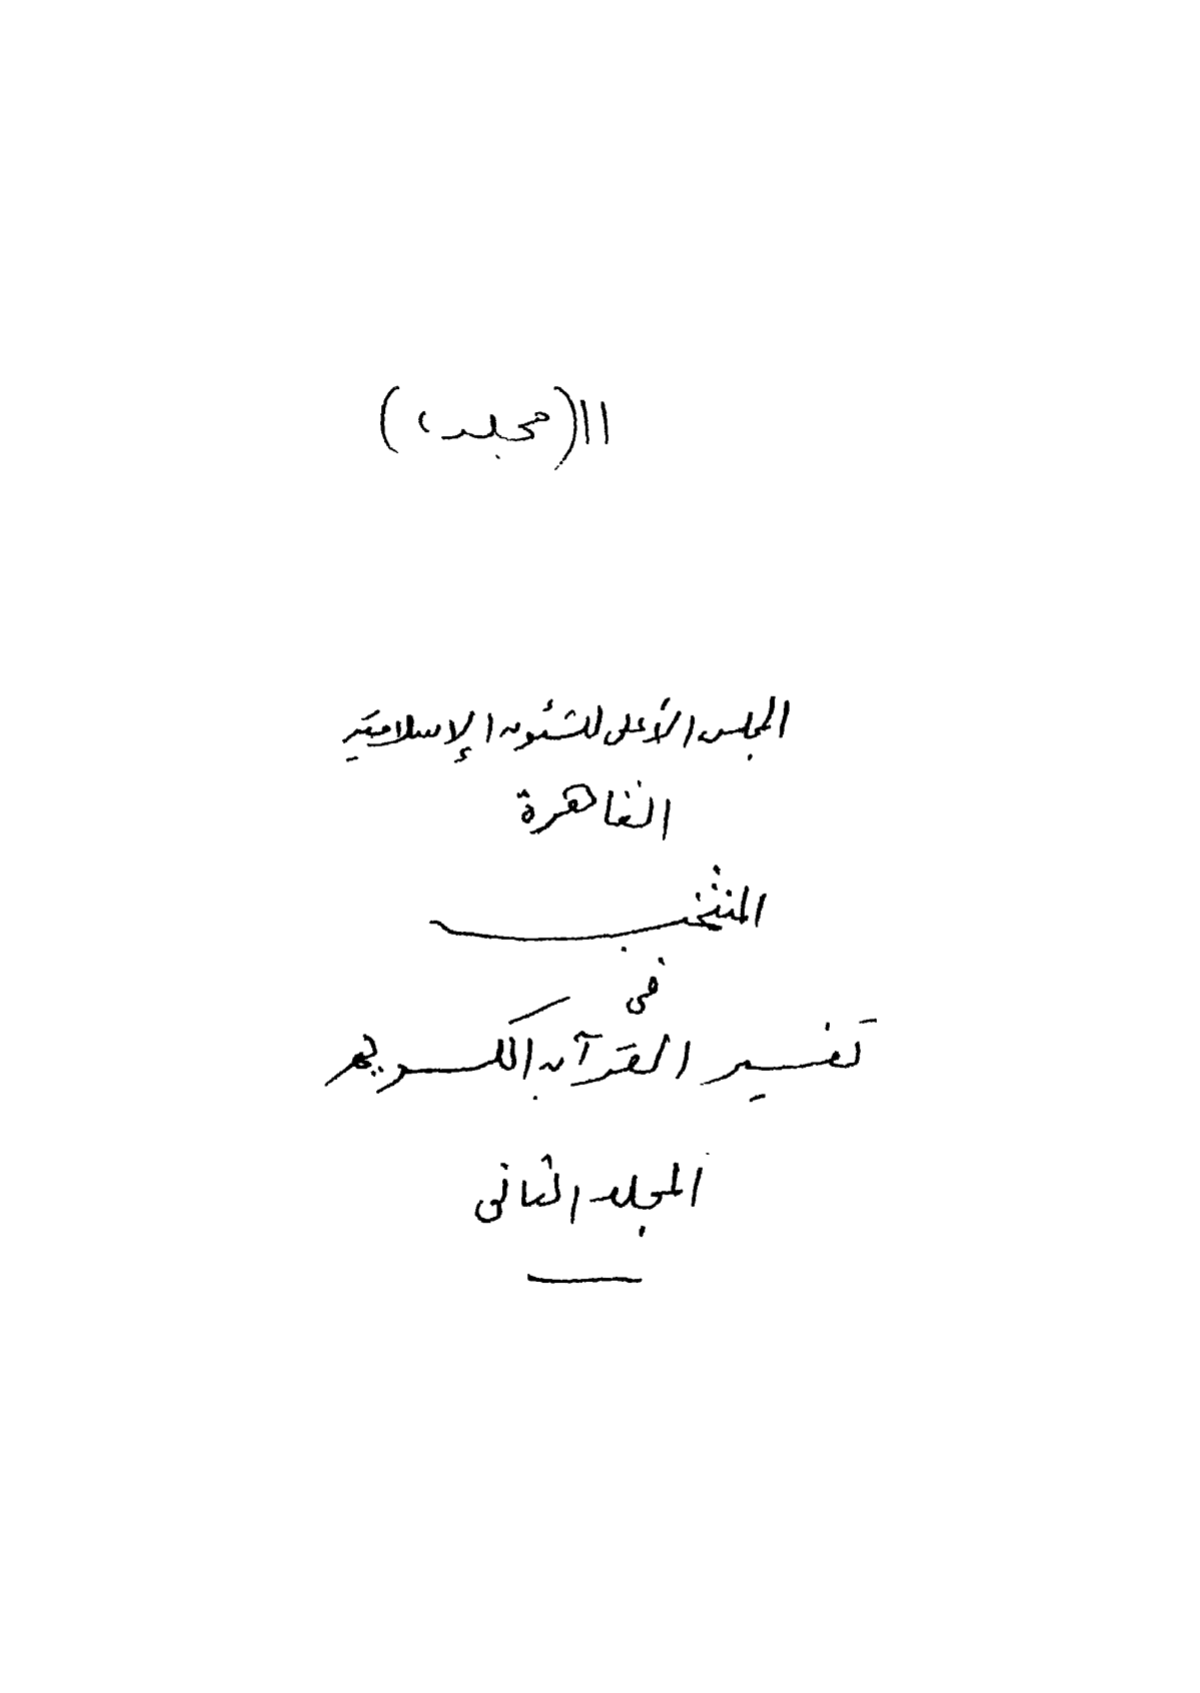 ١١ (مجلد ٢)
المجلس الأعلى للشئون الإسلامية
القاهرة
المنتخب
فى
تفسير القرآن الكريم
المجلد الثانى